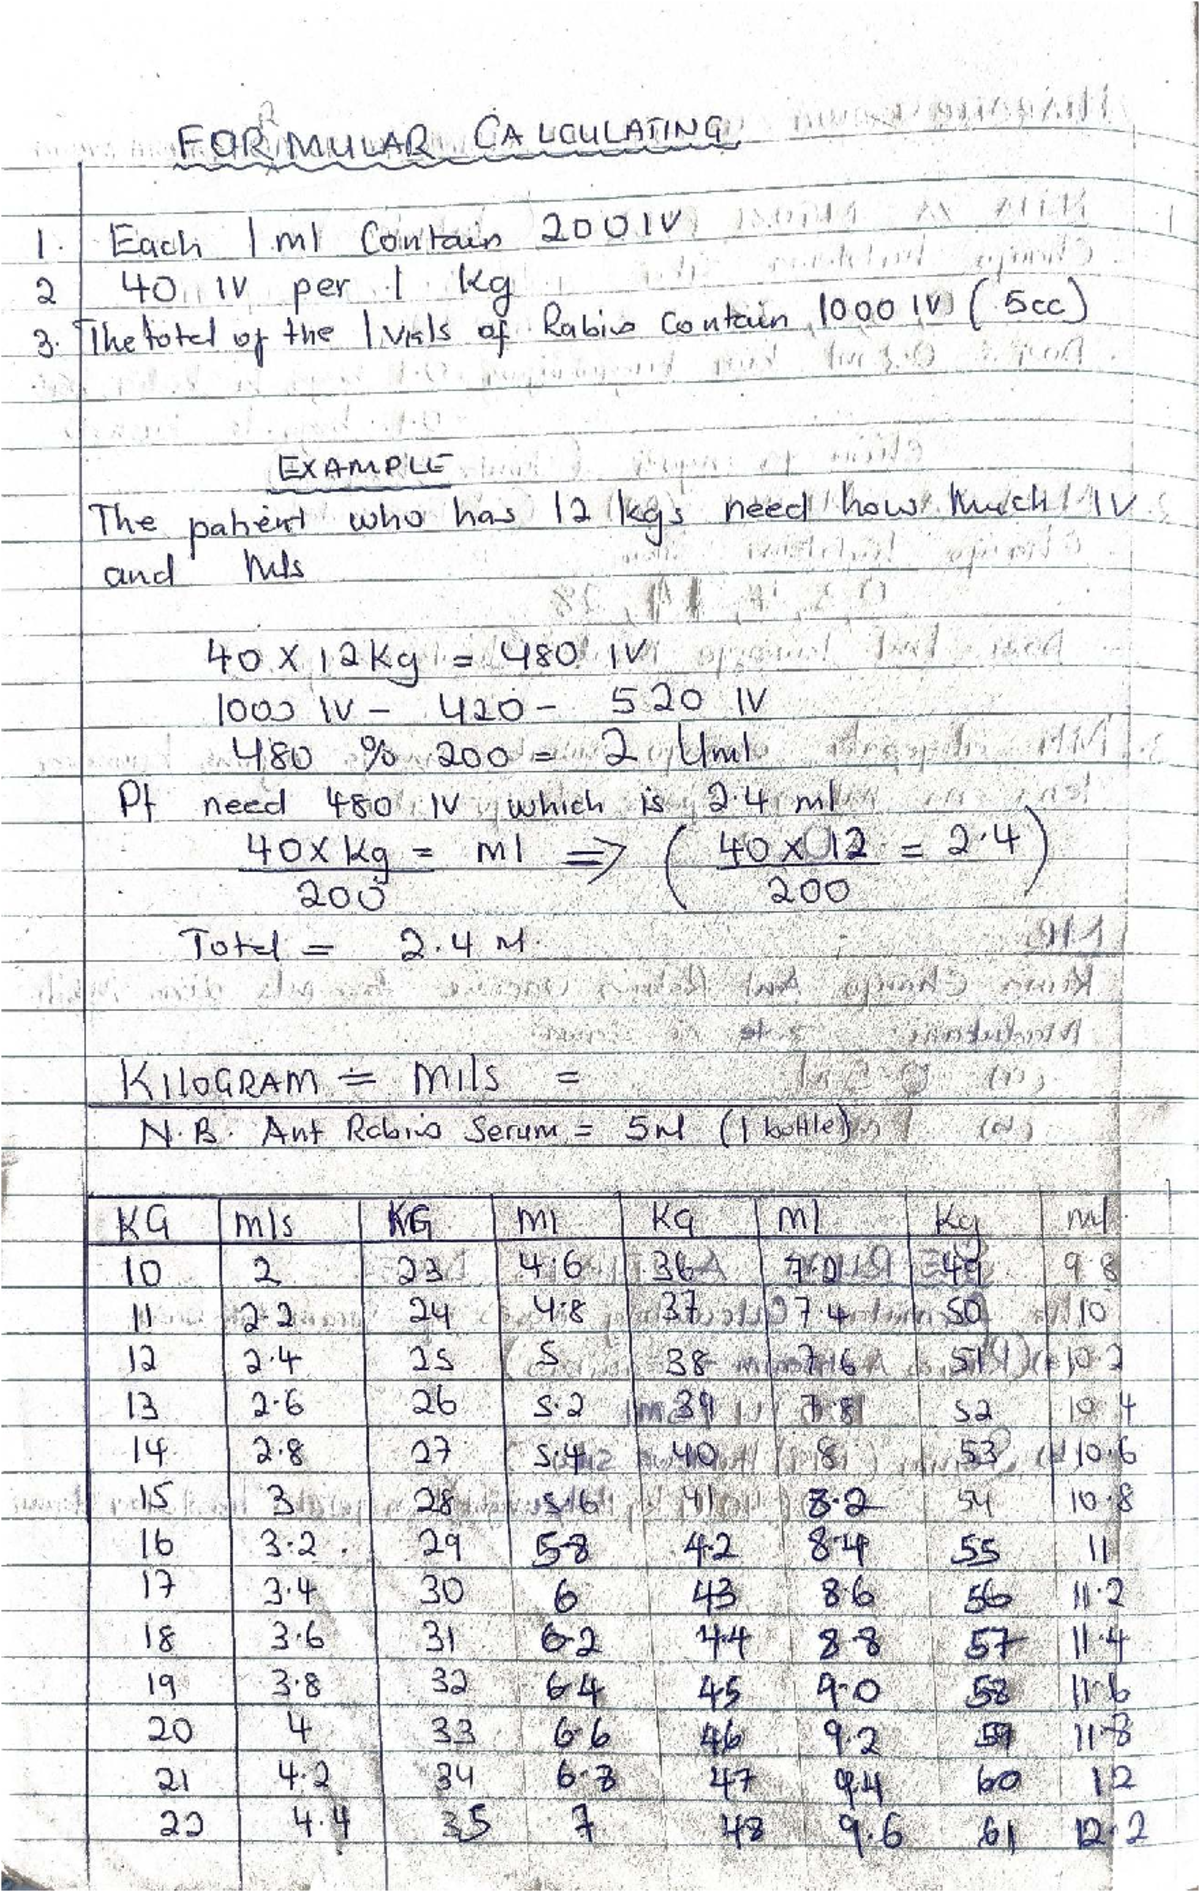 FORMULAR CALCULATING
1. Each 1 ml Contain 200 IV
2 40 IV per 1 kg
3. The totel of the 1 vials of Rabies Contain 1000 IV (5cc)
EXAMPLE
The patient who has 12 kgs need how Much IV
and Mls
40 X 12 Kg = 480 IV
1000 IV - 420 - 520 IV
480 % 200 = 2 4ml
Pt need 480 IV which is 2.4 ml
40 X Kg = ml => (40 X 12 = 2.4)
200 200
Total = 2.4 Ml.
KILOGRAM = MILS =
N.B. Ant Rabies Serum = 5Ml (1 bottle)
KG mls KG Ml Kg Ml Kg ml
10 2 23 4.6 36 7.2 49 9.8
11 2.2 24 4.8 37 7.4 50 10
12 2.4 25 5 38 7.6 51 10.2
13 2.6 26 5.2 39 7.8 52 10 4
14 2.8 27 5.4 40 8 53 10.6
15 3 28 5.6 41 8.2 54 10.8
16 3.2 29 58 42 8.4 55 11
17 3.4 30 6 43 8.6 56 11.2
18 3.6 31 6.2 44 8.8 57 11.4
19 3.8 32 6.4 45 9.0 58 11.6
20 4 33 6.6 46 9.2 59 11.8
21 4.2 34 6.8 47 9.4 60 12
22 4.4 35 7 48 9.6 61 12.2